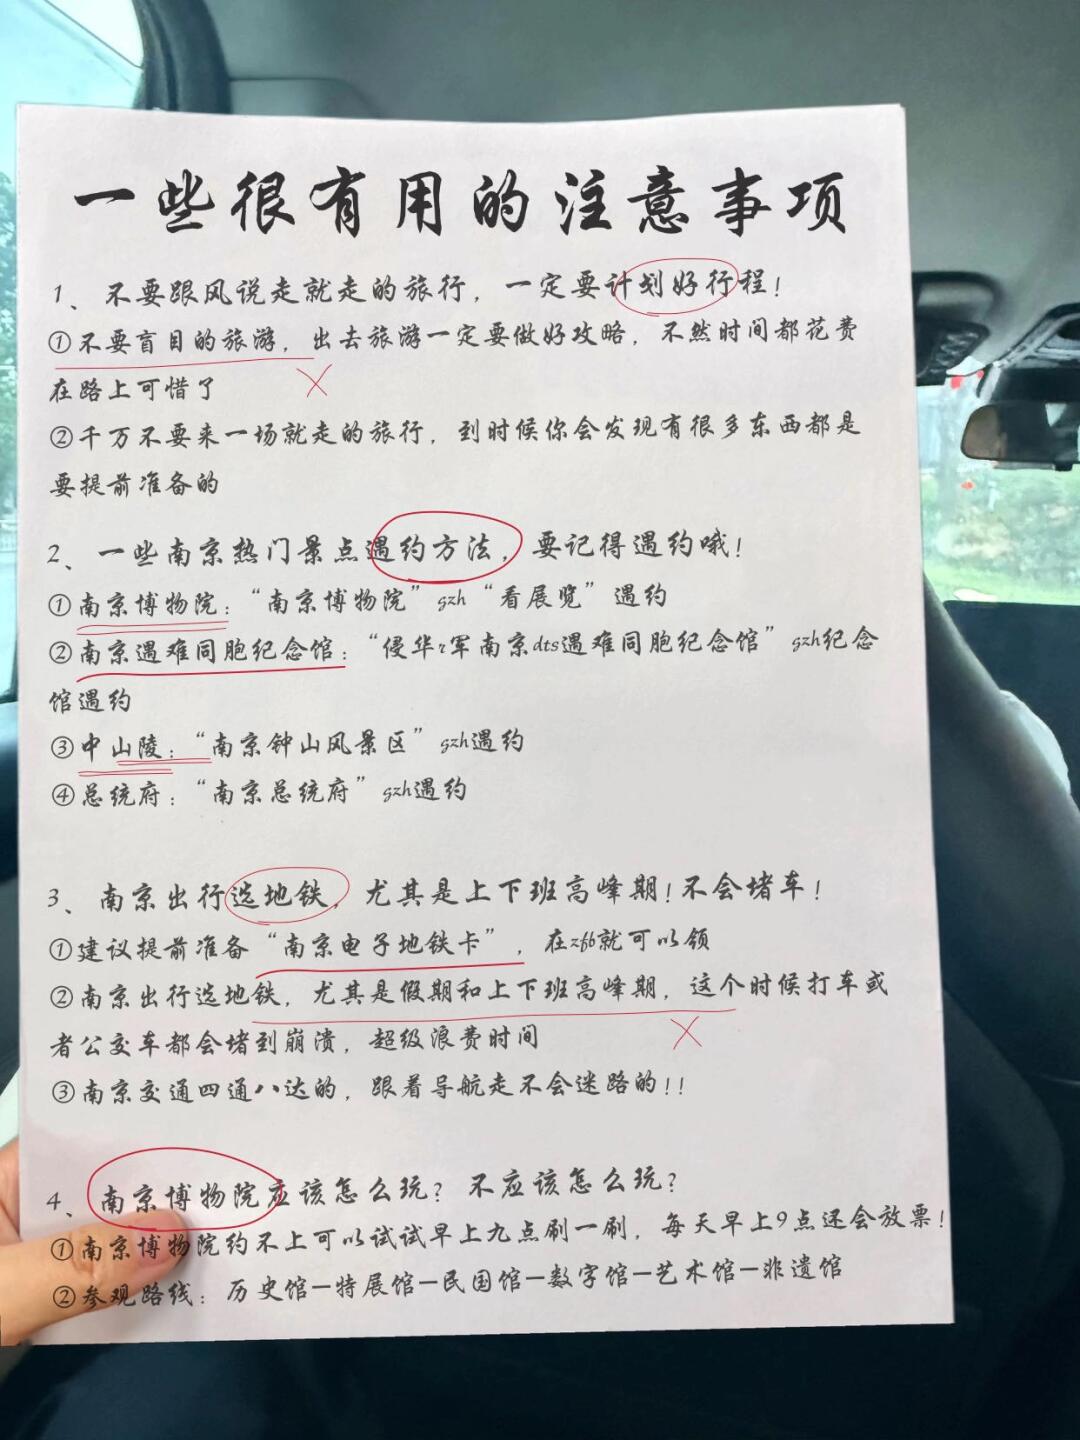 一些很有用的注意事项
1、不要跟风说走就走的旅行，一定要计划好行程！
①不要盲目的旅游，出去旅游一定要做好攻略，不然时间都花费
在路上可惜了
②千万不要来一场就走的旅行，到时候你会发现有很多东西都是
要提前准备的
2、一些南京热门景点遇约方法，要记得遇约哦！
①南京博物院：“南京博物院”gzh“看展览”遇约
②南京遇难同胞纪念馆：“侵华r军南京dts遇难同胞纪念馆”gzh纪念
馆遇约
③中山陵：“南京钟山风景区”gzh遇约
④总统府：“南京总统府”gzh遇约
3、南京出行选地铁，尤其是上下班高峰期！不会堵车！
①建议提前准备“南京电子地铁卡”，在zfb就可以领
②南京出行选地铁，尤其是假期和上下班高峰期，这个时候打车或
者公交车都会堵到崩溃，超级浪费时间
③南京交通四通八达的，跟着导航走不会迷路的！！
4、南京博物院应该怎么玩？不应该怎么玩？
①南京博物院约不上可以试试早上九点刷一刷，每天早上9点还会放票！
②参观路线：历史馆—特展馆—民国馆—数字馆—艺术馆—非遗馆